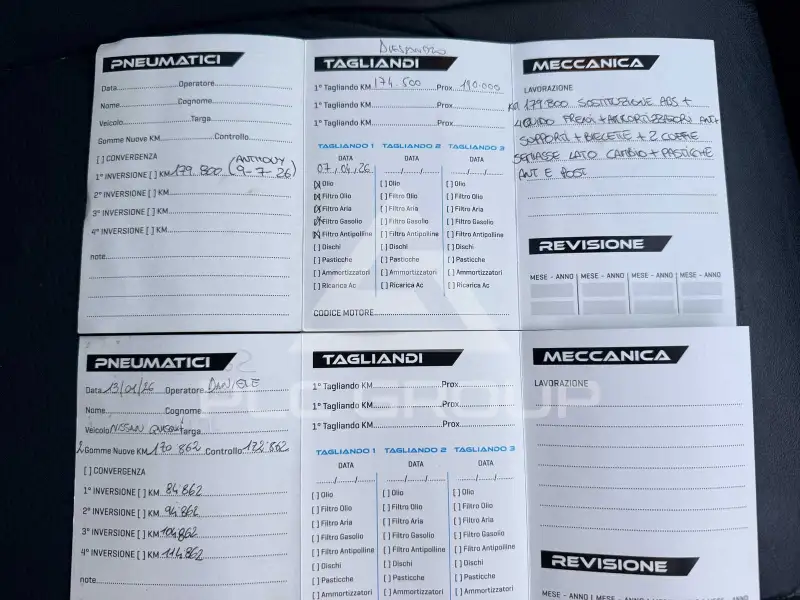 PNEUMATICI
Data
Operatore
Nome
Cognome
Veicolo
Targa
Gomme Nuove KM
Controllo
[ ] CONVERGENZA
(ANTHONY
1° INVERSIONE [ ] KM 179.800 9-7-26)
2° INVERSIONE [ ] KM
3° INVERSIONE [ ] KM
4° INVERSIONE [ ] KM
note
TAGLIANDI
1° Tagliando KM 174.500 Prox 190.000
1° Tagliando KM Prox
1° Tagliando KM Prox
TAGLIANDO 1 TAGLIANDO 2 TAGLIANDO 3
DATA DATA DATA
07/04/26
[X] Olio [ ] Olio [ ] Olio
[X] Filtro Olio [ ] Filtro Olio [ ] Filtro Olio
[X] Filtro Aria [ ] Filtro Aria [ ] Filtro Aria
[X] Filtro Gasolio [ ] Filtro Gasolio [ ] Filtro Gasolio
[X] Filtro Antipolline [ ] Filtro Antipolline [ ] Filtro Antipolline
[ ] Dischi [ ] Dischi [ ] Dischi
[ ] Pasticche [ ] Pasticche [ ] Pasticche
[ ] Ammortizzatori [ ] Ammortizzatori [ ] Ammortizzatori
[ ] Ricarica Ac [ ] Ricarica Ac [ ] Ricarica Ac
CODICE MOTORE
MECCANICA
LAVORAZIONE
KM 179.800 SOSTITUZIONE ABS +
LIQUIDO FRENI + AMMORTIZZATORI ANT+
SUPPORTI + BIELETTE + 2 CUFFIE
SEMIASSE LATO CAMBIO + PASTICHE
ANT E POST
REVISIONE
MESE - ANNO MESE - ANNO MESE - ANNO MESE - ANNO
PNEUMATICI
Data 13/01/26 Operatore DANIELE
Nome Cognome
Veicolo NISSAN Targa
2 Gomme Nuove KM 170'862 Controllo 122'862
[ ] CONVERGENZA
1° INVERSIONE [ ] KM 84.862
2° INVERSIONE [ ] KM 94.862
3° INVERSIONE [ ] KM 104.862
4° INVERSIONE [ ] KM 114.862
note
TAGLIANDI
1° Tagliando KM Prox
1° Tagliando KM Prox
1° Tagliando KM Prox
TAGLIANDO 1 TAGLIANDO 2 TAGLIANDO 3
DATA DATA DATA
[ ] Olio [ ] Olio [ ] Olio
[ ] Filtro Olio [ ] Filtro Olio [ ] Filtro Olio
[ ] Filtro Aria [ ] Filtro Aria [ ] Filtro Aria
[ ] Filtro Gasolio [ ] Filtro Gasolio [ ] Filtro Gasolio
[ ] Filtro Antipolline [ ] Filtro Antipolline [ ] Filtro Antipolline
[ ] Dischi [ ] Dischi [ ] Dischi
[ ] Pasticche [ ] Pasticche [ ] Pasticche
[ ] Ammortizzatori [ ] Ammortizzatori [ ] Ammortizzatori
MECCANICA
LAVORAZIONE
REVISIONE
MESE - ANNO MESE - ANNO MESE - ANNO MESE - ANNO
PLC GROUP